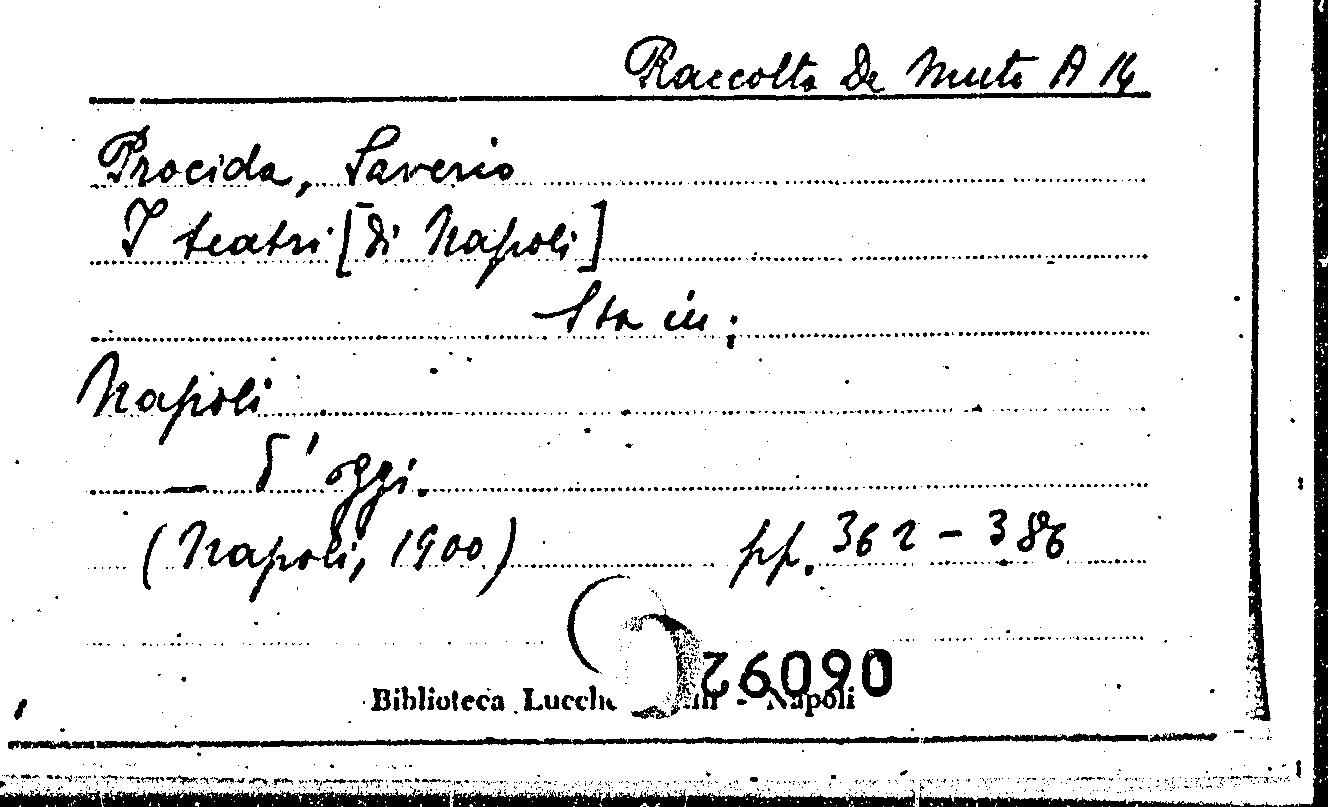 Raccolta De Muto A 14
Procida, Saverio
I teatri [di Napoli]
Sta in:
Napoli
— d'oggi.
(Napoli, 1900) pp. 362 - 386
Biblioteca - Napoli